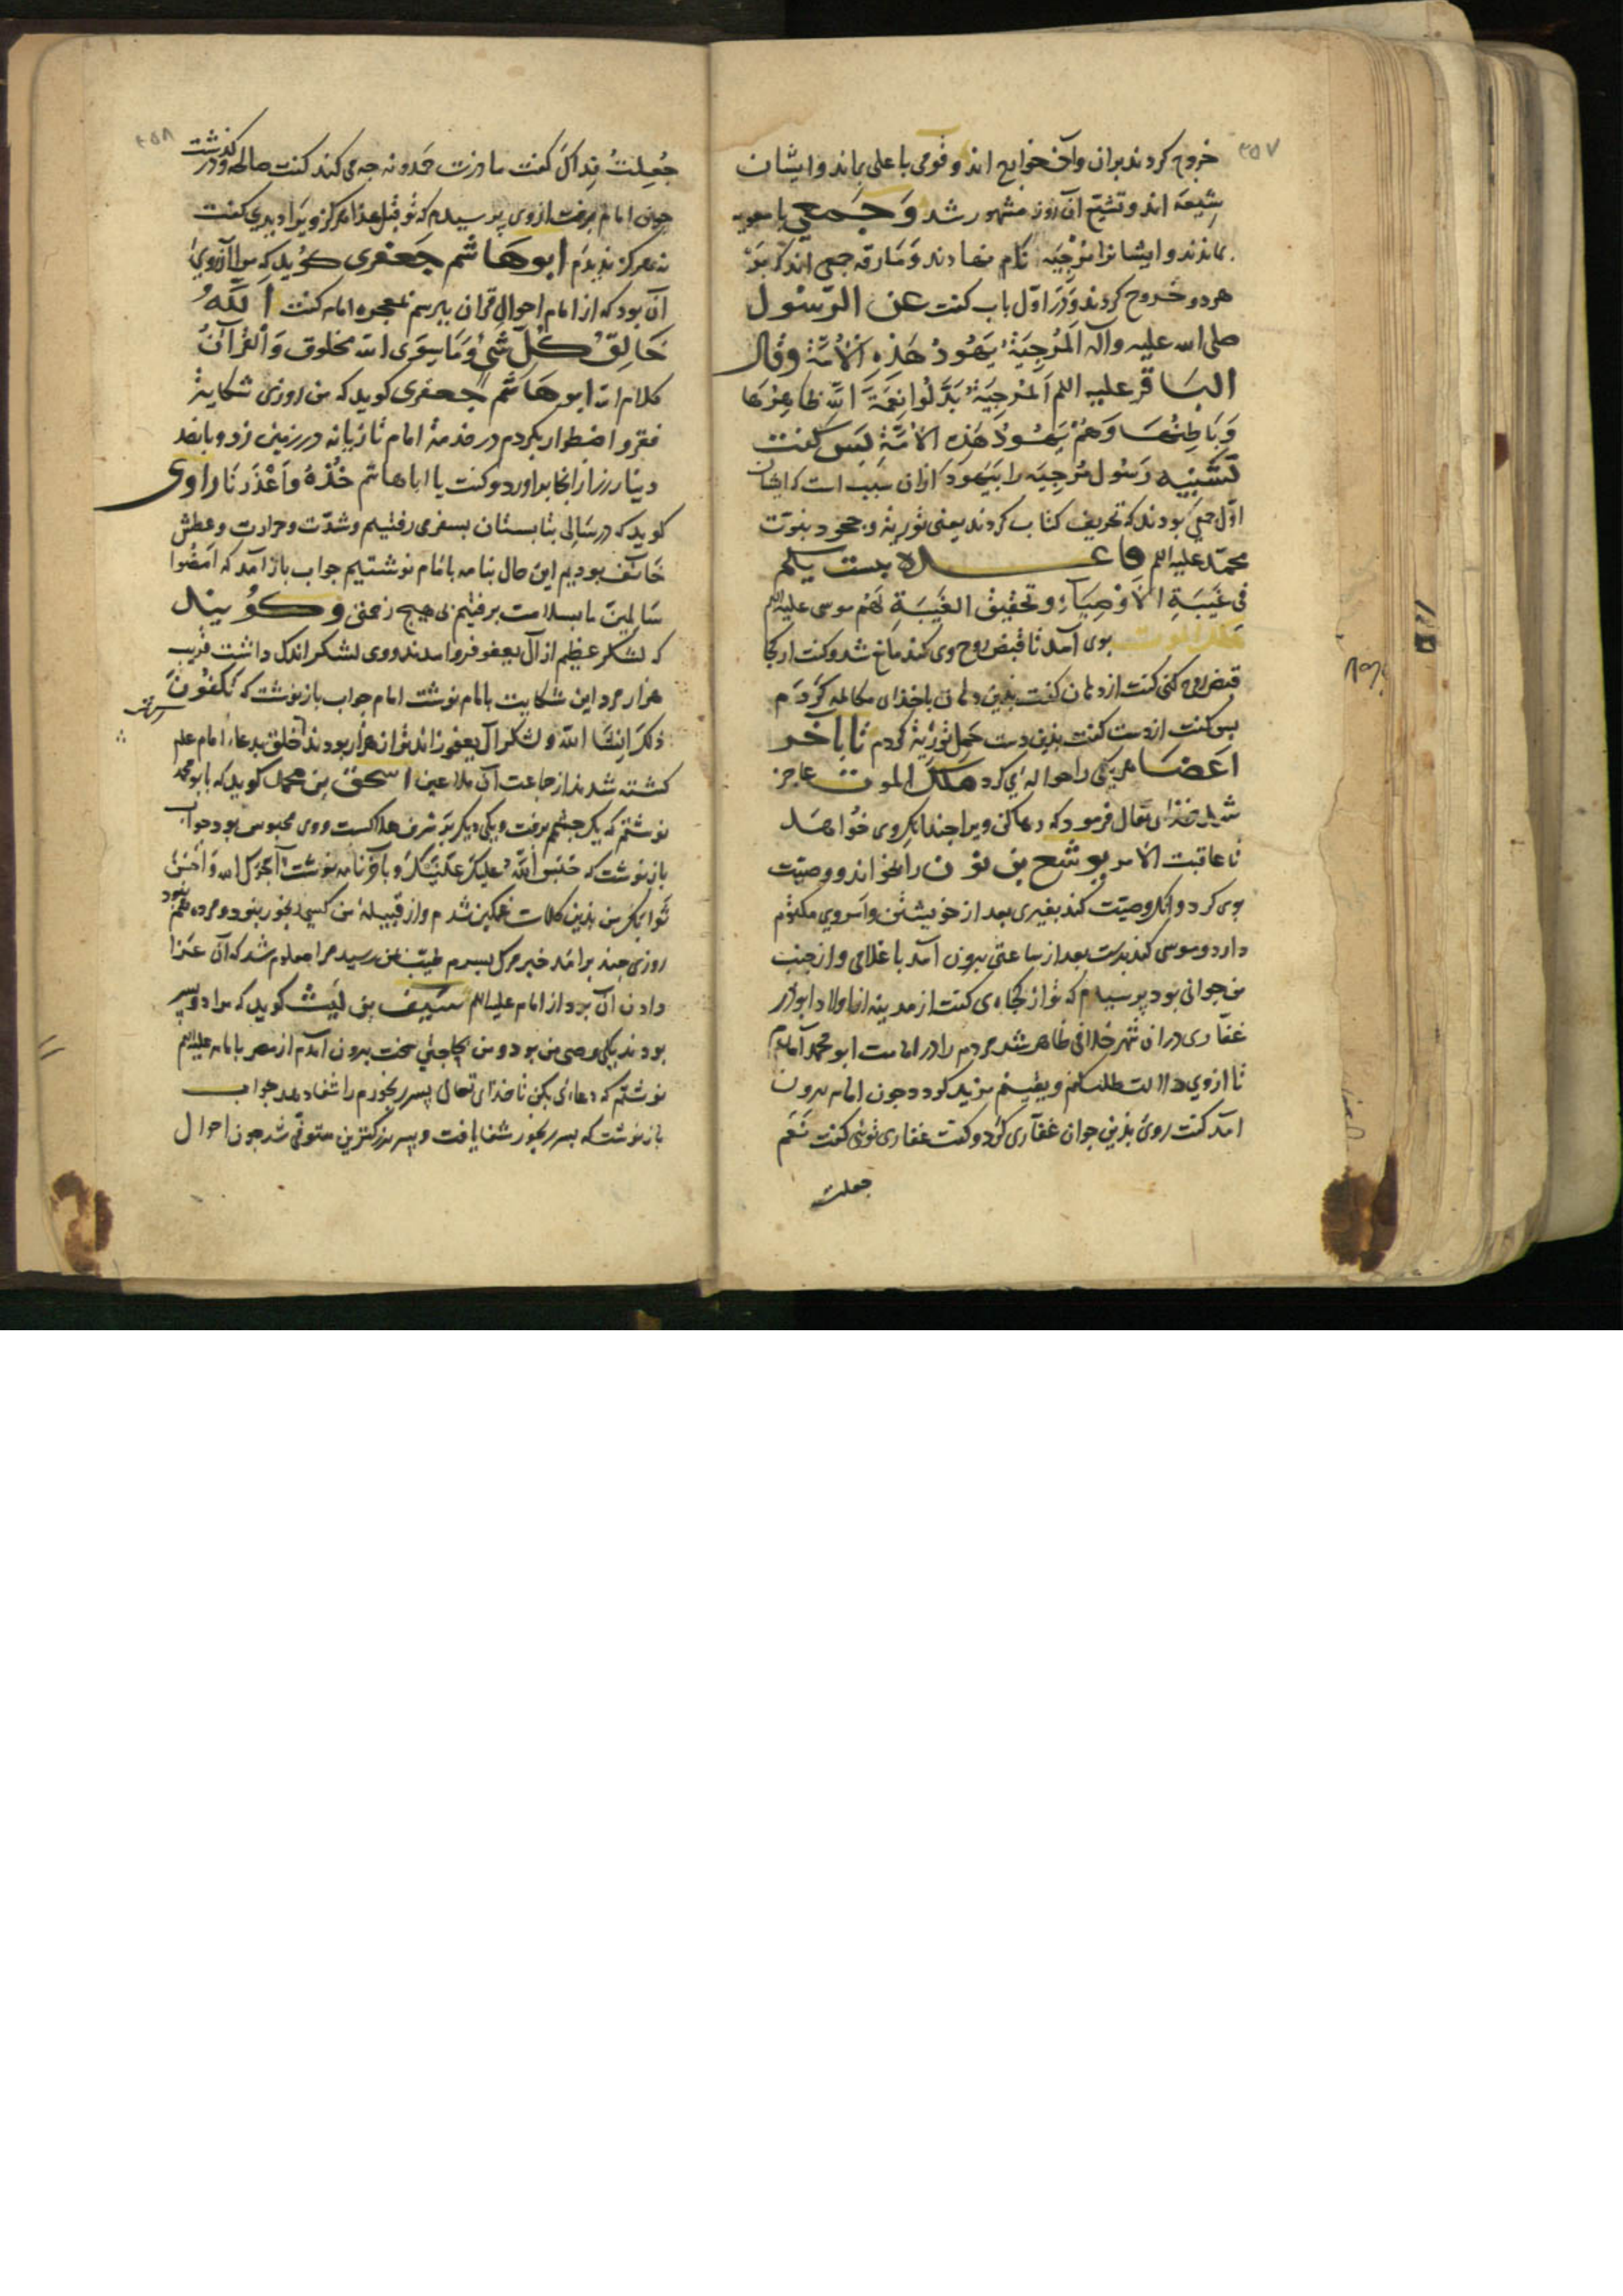 ۳۵۷
خروج کردند بران وآن خوارج اند و قومی با علی بماند و ایشان
شیعه اند و تشیّع آن روز مشهور شد وَجَمعی با معویه
بماندند و ایشانرا مُرْجِیَه نام نهادند وَ مَارقه جمعی اند که بَرْ
هر دو خروج کردند وَدَرْ اوّل باب کفت عن الرّسول
صلی الله علیه وآله اَلمُرْجِیَةُ یَهُودُ هَذِهِ الْاُمَّةِ وقال
البَاقر علیه اللم اَلمُرْجِیَةُ بَدَّلُوا نِعْمَةَ اللّٰه ظاهِرُهَا
وَبَاطِنُهَا وَهُمْ یَهُودُ هَذِهِ الْاُمَّةِ پَس کفت
تَشْبیه رَسُول مُرجِیَه را بَیَهود ازان سَبب است که ایشان
اوّل جمعی بودند که تحریف کتاب کردند یعنی توریة و جحود بنوّت
محمّد علیه اللم قاعـده بیست یکم
فی غَیبَةِ الْاَوْصِیَاءِ وتحقیق الغَیبَةِ لَهُم موسی علیه اللم
ملک الموت بوی آمد تا قبض روح وی کند مانع شد و کفت از کجا
قبض روح کنی کفت از دهان کفت بذین دهان با خذای مکالمه کَرْدَم
پس کفت از دست کفت بذین دست حَملِ توریة کردم تا بآخر
اَعضا هر یکی را حواله ای کرد ملک الموت عاجز
شد خذای تعالی فرمود که رها کن ویرا چندانکه وی خواهد
تا عاقبت الامر یوشع بن نون را بخواند و وصیّت
بوی کرد و انکه وصیّت کند بغیری بعد از خویشتن واَسروی مکتوم
دارد و موسی کند بدست بعد از ساعتی بیرون آمد با غلامی واز جنب
من جوانی بود پرسیدم که تو از کجاه ی کفت از مدینه از اولاد ابوذر
غفاری دران شهر خلافی ظاهر شد مردم را در امامت ابو محمد آمدم
تا ازوی دلالت طلب کنم ویقینم مزید کردد چون امام بیرون
آمد کفت روی بذین جوان غفاری کرد و کفت غفاری توئی کفت نَعَم
جعلت
۳۵۸
جُعِلتُ فِداکَ کفت مادرت حَمدونه چه می کند کفت صالحه و درکذشت
چون امام برفت ازوی پرسیدم که تو قبل هذا هرکز ویرا دیدی کفت
نه هرکز ندیدم ابوهَاشم جَعفَری کوید که مرا آرزوی
آن بود که از امام احوال قرآن بپرسم بمعجزه امام کفت اَللّٰهُ
خَالِقُ کُلِّ شَیْءٍ وَمَا سِوَی الله مخلوق وَالقُرْآنُ
کلام الله ابوهاشم جعفری کوید که من روزی شکایة
فقر و اضطرار بکردم در خدمة امام تازیانه در زمین زد و پانصد
دینار زر از انجا براورد و کفت یا اباهاشم خُذهُ وَاَعْذِرْنَا وَراوی
کوید که در سالی بتابستان بسفری رفتیم وشدّت وحرارت وعطش
خَائف بودیم این حال بنامه بامام نوشتیم جواب باز آمد که اَمضُوا
سَالمینَ ما بسلامت برفتیم بی هیچ زحمتی وکویند
که لشکر عظیم از آل جعفر فرو آمدند ووی لشکر اندک داشت قریب
هزار مرد این شکایت بامام نوشت امام جواب باز نوشت که تُکفَونَ
ذلکَ اِنشَا اللّٰه و لشکر آل جعفر زاید تر از هزار بودند خلق بدعاء امام علم
کشته شدند از جماعت آن ملاعین اسحق بن محمد کوید که بابو محمد
نوشتم که یک چشم برفت ویکی دیکر بر شرف هلاکست ووی محبوس بود جواب
باز نوشت که حَبَسَ اللّٰهُ علیکَ عَینَیکَ و باخر نامه نوشت آجَرَکَ الله وَاَحسَنَ
ثوابک من بذین کلمات غمکین شدم واز قبیله من کسی رنجور نبود و مرده هم نبود
روزی چند برآمد خبر مرک پسرم طیّب بمن رسید مرا معلوم شد که آن عَزا
دادن آن بود از امام علیه اللم سَیف بن لَیث کوید که مرا دو پسر
بودند یکی وصی من بود و من بحاجتی سخت بیرون آمدم از مصر بامام علیه اللم
نوشتم که دعائی بکن تا خذای تعالی پسر رنجورم را شفا دهد جواب
باز نوشت که پسر رنجور شفا یافت و پسر بزرکترین متوفّی شد چون احوال